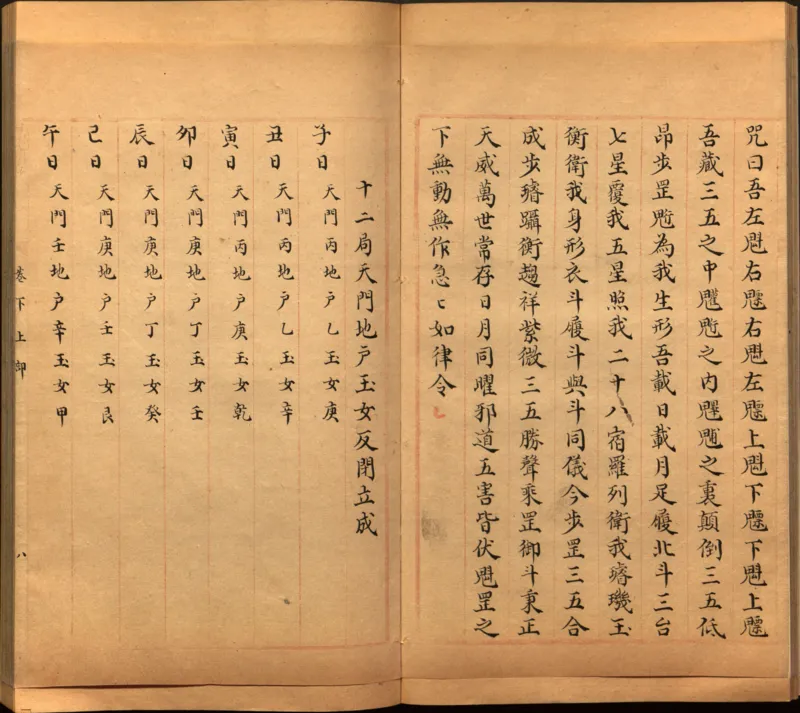 咒曰吾左魁右右魁左上魁下下魁上
吾藏三五之中之内之裏顛倒三五低
昂步罡為我生形吾載日載月足履北斗三台
七星覆我五星照我二十八宿羅列衛我璿璣玉
衡衛我身形衣斗履斗與斗同儀今步罡三五合
成步璿躡衡趨祥紫微三五勝聲乘罡御斗秉正
天威萬世常存日月同曜邪道五害皆伏魁罡之
下無動無作急〻如律令
十二局天門地戶玉女反閉立成
子日天門丙地戶乙玉女庚
丑日天門丙地戶乙玉女辛
寅日天門丙地戶庚玉女乾
卯日天門庚地戶丁玉女壬
辰日天門庚地戶丁玉女癸
巳日天門庚地戶壬玉女艮
午日天門壬地戶辛玉女甲
卷下上卸 八